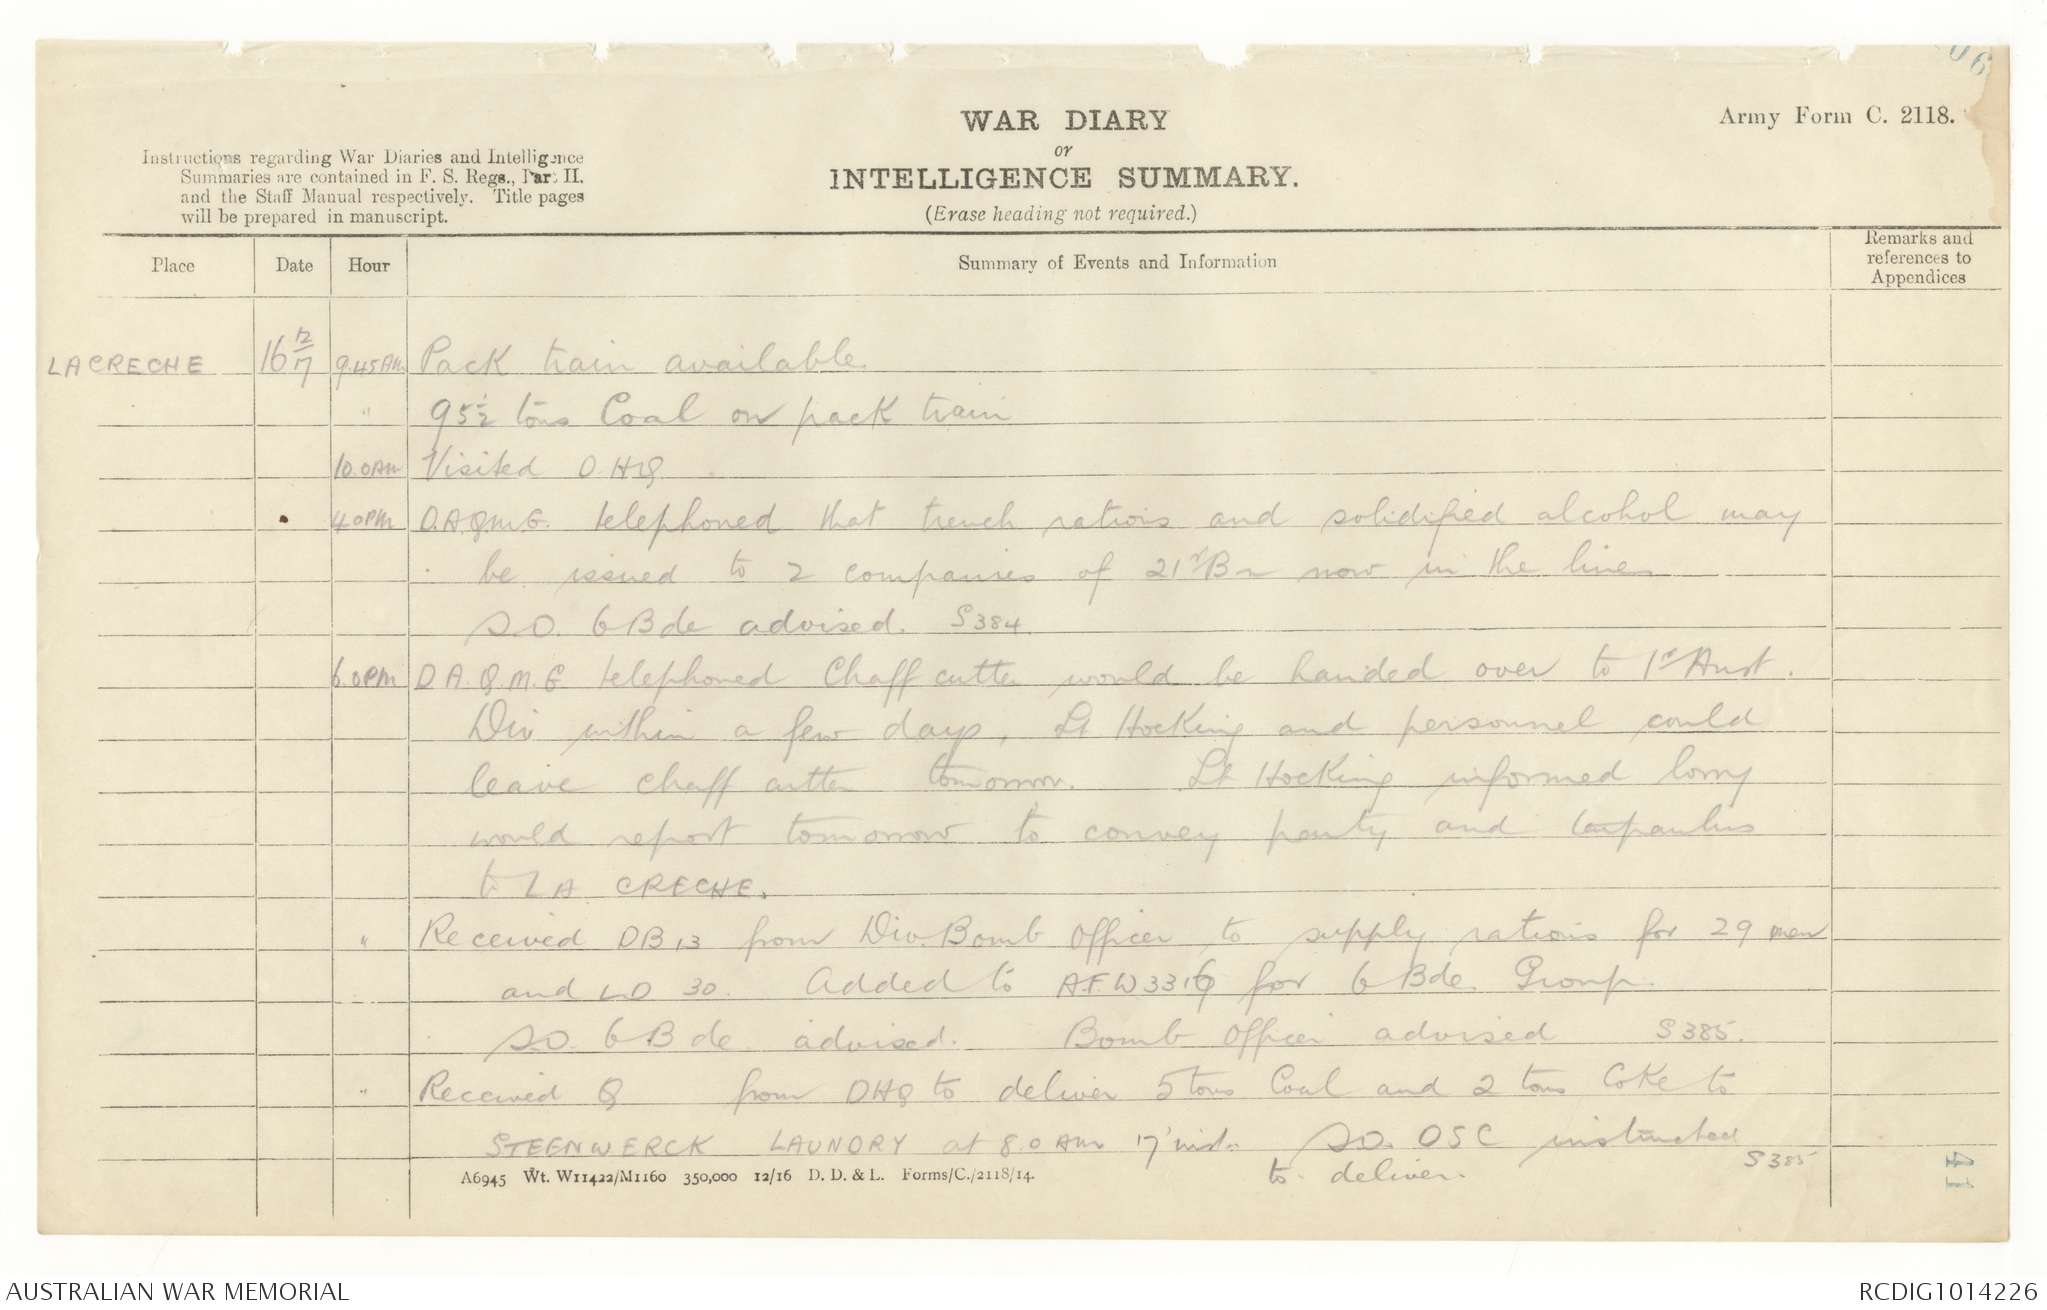 06
Army Form C. 2118.
WAR DIARY
or
INTELLIGENCE SUMMARY.
(Erase heading not required.)
Instructions regarding War Diaries and Intelligence
Summaries are contained in F. S. Regs., Part II.
and the Staff Manual respectively. Title pages
will be prepared in manuscript.
Place Date Hour Summary of Events and Information Remarks and
references to
Appendices
LA CRECHE 16 12/17 9.45AM Pack train available.
" 95½ tons Coal on pack train
10.0AM Visited DHQ.
4.0PM D.A.Q.M.G. telephoned that trench rations and solidified alcohol may
be issued to 2 companies of 21st Bn now in the lines
S.O. 6 Bde advised. S384.
6.0PM D.A.Q.M.G telephoned Chaff cutter would be handed over to 1st Aust.
Div within a few days, Lt Hocking and personnel could
leave chaff cutter tomorrow. Lt Hocking informed lorry
would report tomorrow to convey party and tarpaulins
to LA CRECHE.
" Received DB13 from Div. Bomb Officer to supply rations for 29 men
and LD 30. Added to A.F.W3316 for 6 Bde. Group.
S.O. 6 Bde. advised. Bomb Officer advised S385.
" Received Q from DHQ to deliver 5 tons Coal and 2 tons Coke to
STEENWERCK LAUNDRY at 8.0 AM 17' inst. S.O. DSC instructed
to deliver. S385
A6945 Wt. W11422/M1160 350,000 12/16 D. D. & L. Forms/C./2118/14.
41
AUSTRALIAN WAR MEMORIAL RCDIG1014226